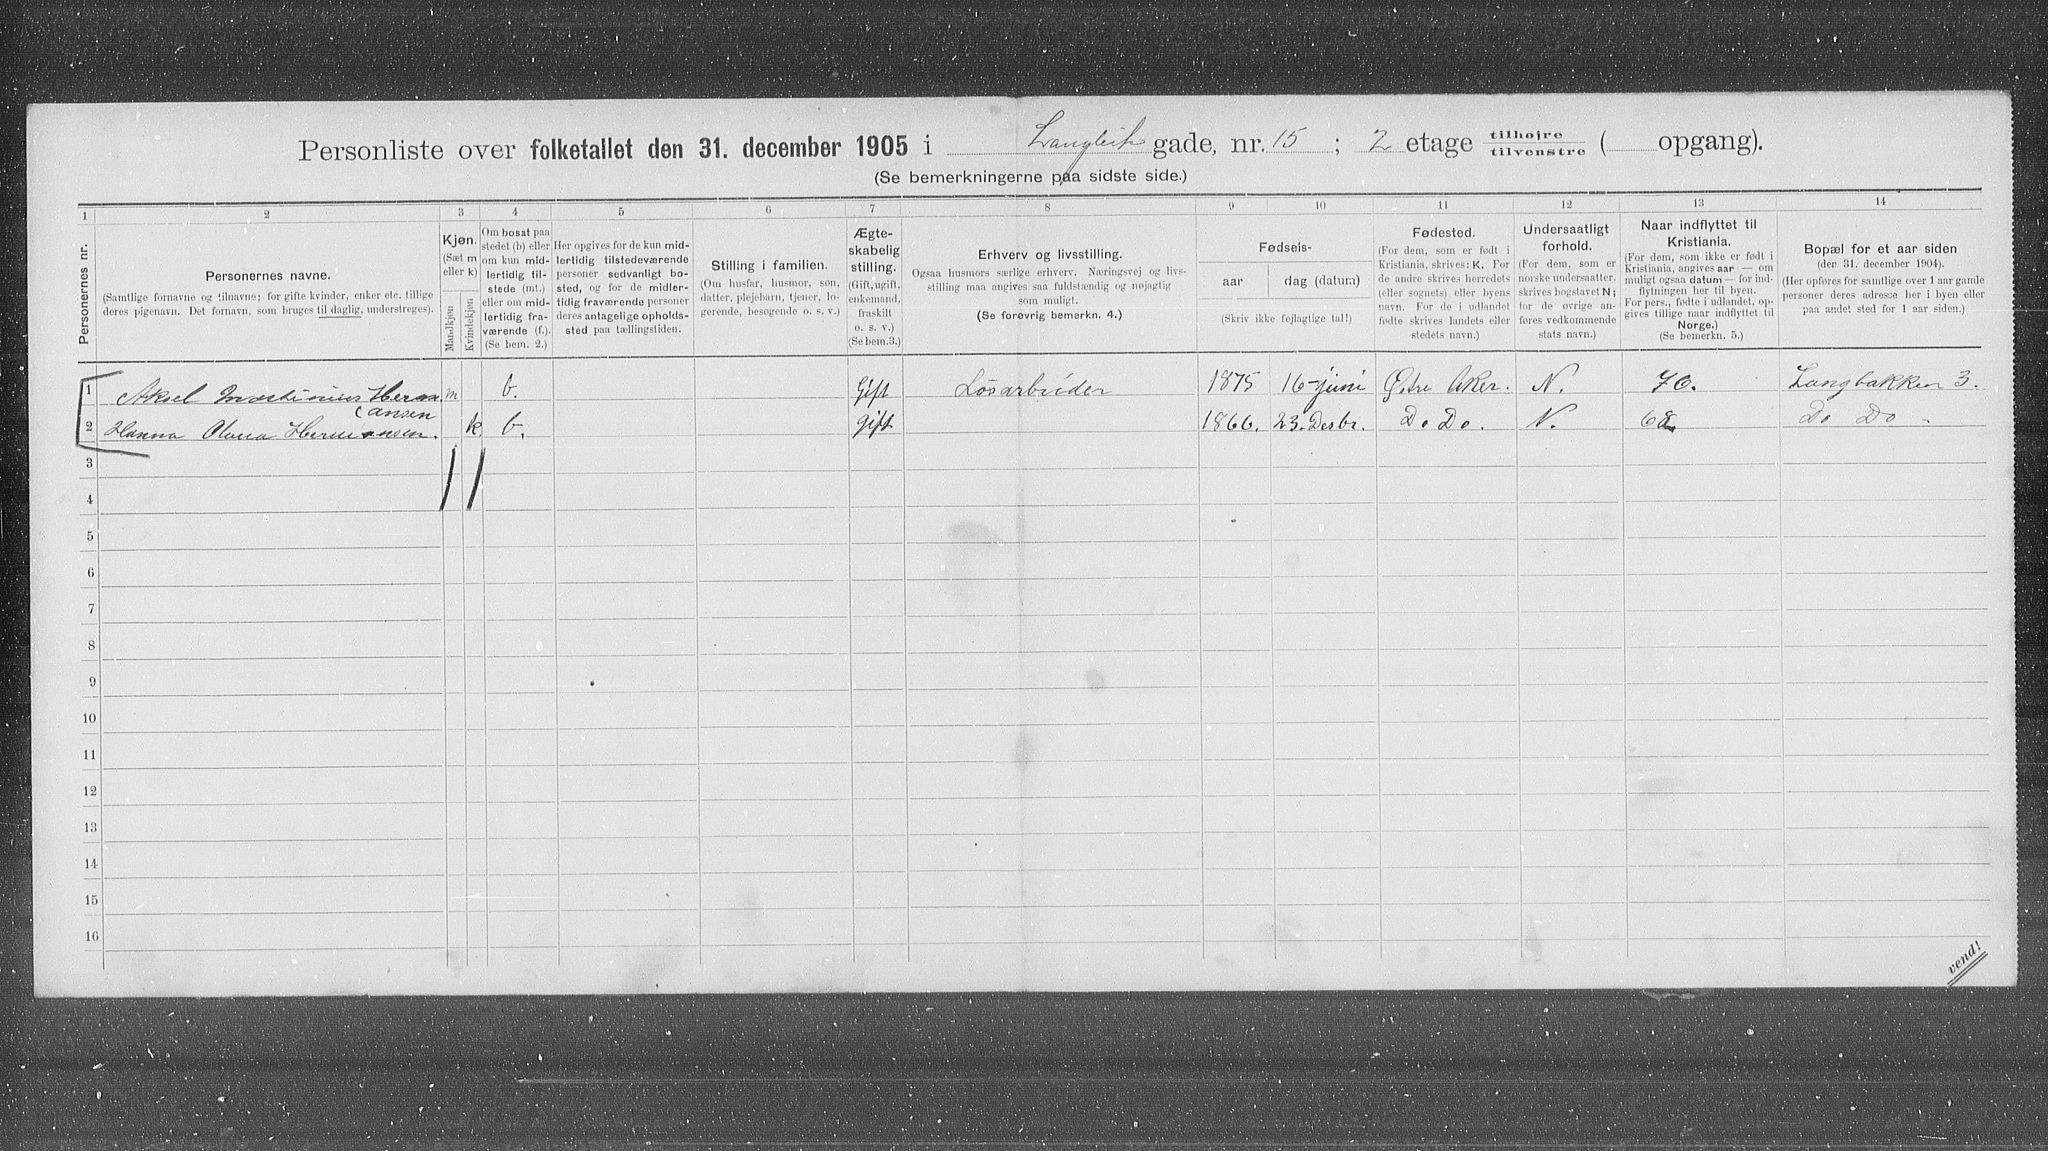 Personliste over folketallet den 31. december 1905 i Langleik gade, nr. 15 ; 2 etage tilhøjre / tilvenstre ( opgang).
(Se bemerkningerne paa sidste side.)
1 2 3 4 5 6 7 8 9 10 11 12 13 14
Personernes nr.
Personernes navne.
(Samtlige fornavne og tilnavne; for gifte kvinder, enker etc. tillige
deres pigenavn. Det fornavn, som bruges til daglig, understreges).
Kjøn.
(Sæt m
eller k)
Mandkjøn
Kvindekjøn
Om bosat paa
stedet (b) eller
om kun mid-
lertidig til-
stede (mt.)
eller om mid-
lertidig fra-
værende (f.).
(Se bem. 2.)
Her opgives for de kun mid-
lertidig tilstedeværende
personer sedvanligt bo-
sted, og for de midler-
tidig fraværende personer
deres antagelige opholds-
sted paa tællingstiden.
Stilling i familien.
(Om husfar, husmor, søn,
datter, plejebarn, tjener, lo-
gerende, besøgende o. s. v.)
Ægte-
skabelig
stilling.
(Gift, ugift,
enkemand,
fraskilt
o. s. v.)
(Se bem.3.)
Erhverv og livsstilling.
Ogsaa husmors særlige erhverv. Næringsvej og livs-
stilling maa angives saa fuldstændig og nøjagtig
som muligt.
(Se forøvrig bemerkn. 4.)
Fødsels-
aar
dag (datum)
(Skriv ikke fejlagtige tal!)
Fødested.
(For dem, som er født i
Kristiania, skrives: K. For
de andre skrives herredets
(eller sognets) eller byens
navn. For de i udlandet
fødte skrives landets eller
stedets navn.)
Undersaatligt
forhold.
(For dem, som er
norske undersaatter,
skrives bogstavet N;
for de øvrige an-
føres vedkommende
stats navn.)
Naar indflyttet til
Kristiania.
(For dem, som ikke er født i
Kristiania, angives aar — om
muligt ogsaa datum — for ind-
flytningen her til byen.
For pers., fødte i udlandet, op-
gives tillige naar indflyttet til
Norge.)
(Se bemerkn. 5.)
Bopæl for et aar siden
(den 31. december 1904).
(Her opføres for samtlige over 1 aar gamle
personer deres adresse her i byen eller
paa andet sted for 1 aar siden.)
1 Aksel Herm m b. Gift Løsarbeider 1875 16-juni Østre Aker. N. 76. Langbakken 3.
(ansen
2 Hanna Hermansen. k. b. Gift 1866. 23. Desbr. Do Do. N. Do Do
3
4
5
6
7
8
9
10
11
12
13
14
15
16
vend!